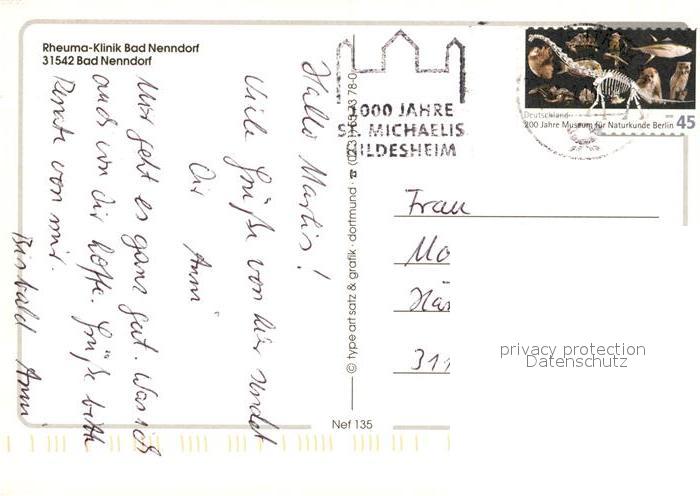 Rheuma-Klinik Bad Nenndorf
31542 Bad Nenndorf
Hallo Marlis!
Viele Grüße von hier sendet
Dir Anni
Mir geht es ganz gut. Was ich
auch von Dir hoffe. Grüße bitte
Renate von mir.
Bis bald Anni
© type art satz & grafik · dortmund · ☎
78-0
Nef 135
1000 JAHRE
ST. MICHAELIS
HILDESHEIM
Deutschland
200 Jahre Museum für Naturkunde Berlin
45
Frau
Mo
Häs
311
privacy protection
Datenschutz